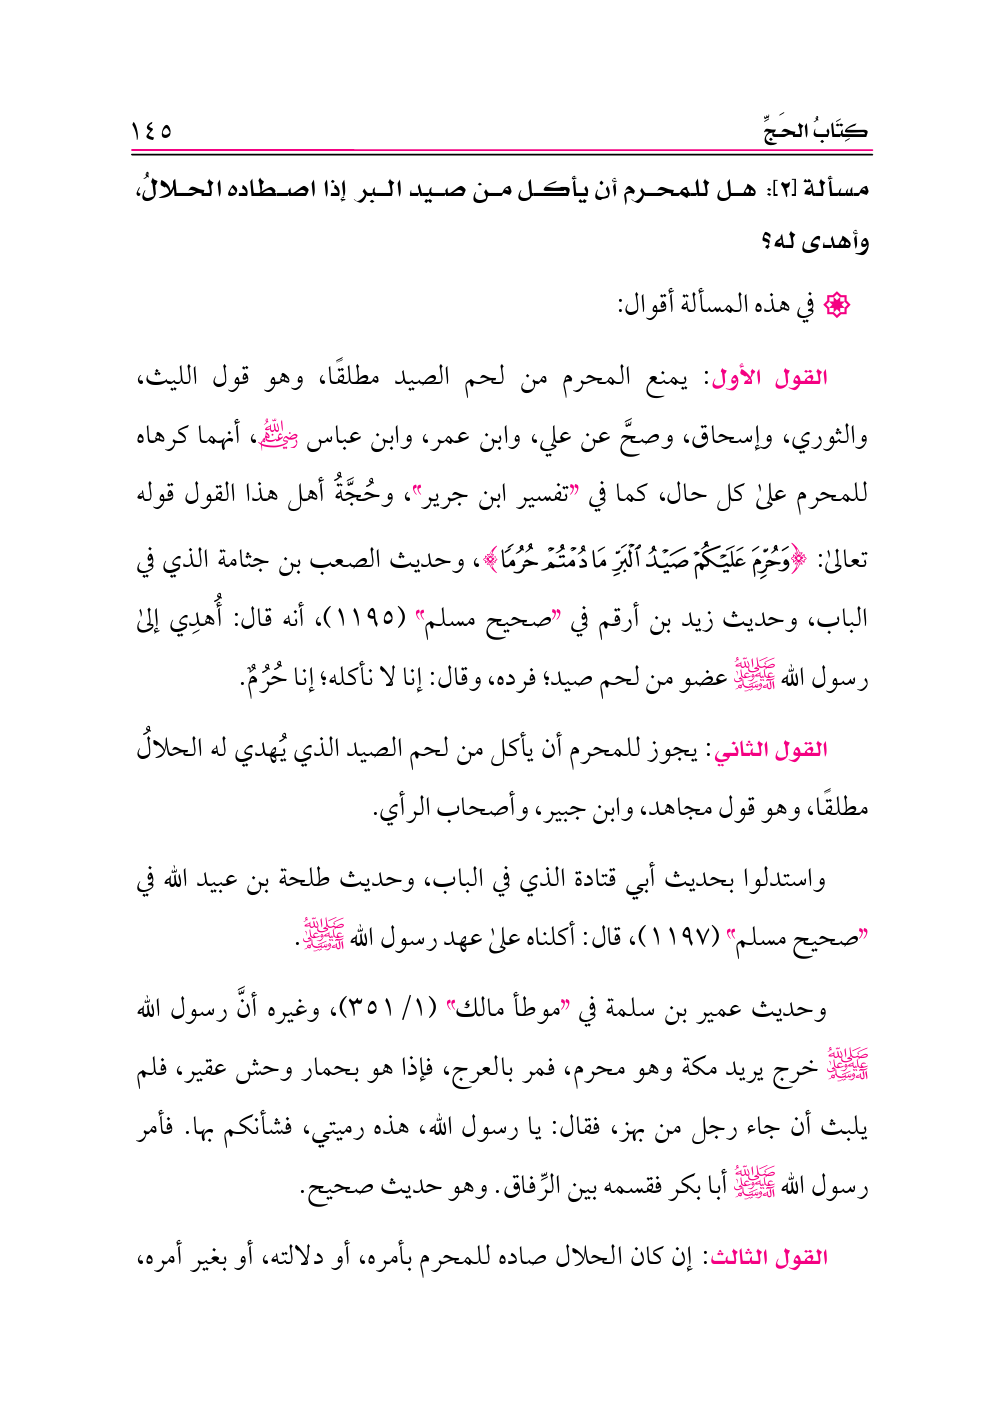 كِتَابُ الحَجِّ ١٤٥
مسألة [٢]: هـل للمحـرم أن يأكـل مـن صـيد الـبر إذا اصـطاده الحـلالُ،
وأهدى له؟
في هذه المسألة أقوال:
القول الأول: يمنع المحرم من لحم الصيد مطلقًا، وهو قول الليث،
والثوري، وإسحاق، وصحَّ عن علي، وابن عمر، وابن عباس رضي الله عنهم، أنهما كرهاه
للمحرم علىٰ كل حال، كما في "تفسير ابن جرير"، وحُجَّةُ أهل هذا القول قوله
تعالىٰ: ﴿وَحُرِّمَ عَلَيْكُمْ صَيْدُ ٱلْبَرِّ مَا دُمْتُمْ حُرُمًا﴾، وحديث الصعب بن جثامة الذي في
الباب، وحديث زيد بن أرقم في "صحيح مسلم" (١١٩٥)، أنه قال: أُهدِي إلىٰ
رسول الله صلى الله عليه وعلى آله وسلم عضو من لحم صيد؛ فرده، وقال: إنا لا نأكله؛ إنا حُرُمٌ.
القول الثاني: يجوز للمحرم أن يأكل من لحم الصيد الذي يُهدي له الحلالُ
مطلقًا، وهو قول مجاهد، وابن جبير، وأصحاب الرأي.
واستدلوا بحديث أبي قتادة الذي في الباب، وحديث طلحة بن عبيد الله في
"صحيح مسلم" (١١٩٧)، قال: أكلناه علىٰ عهد رسول الله صلى الله عليه وعلى آله وسلم.
وحديث عمير بن سلمة في "موطأ مالك" (١/ ٣٥١)، وغيره أنَّ رسول الله
صلى الله عليه وعلى آله وسلم خرج يريد مكة وهو محرم، فمر بالعرج، فإذا هو بحمار وحش عقير، فلم
يلبث أن جاء رجل من بهز، فقال: يا رسول الله، هذه رميتي، فشأنكم بها. فأمر
رسول الله صلى الله عليه وعلى آله وسلم أبا بكر فقسمه بين الرِّفاق. وهو حديث صحيح.
القول الثالث: إن كان الحلال صاده للمحرم بأمره، أو دلالته، أو بغير أمره،